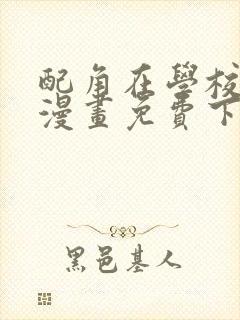 配角在學校
漫畫免費下
黑邑基人